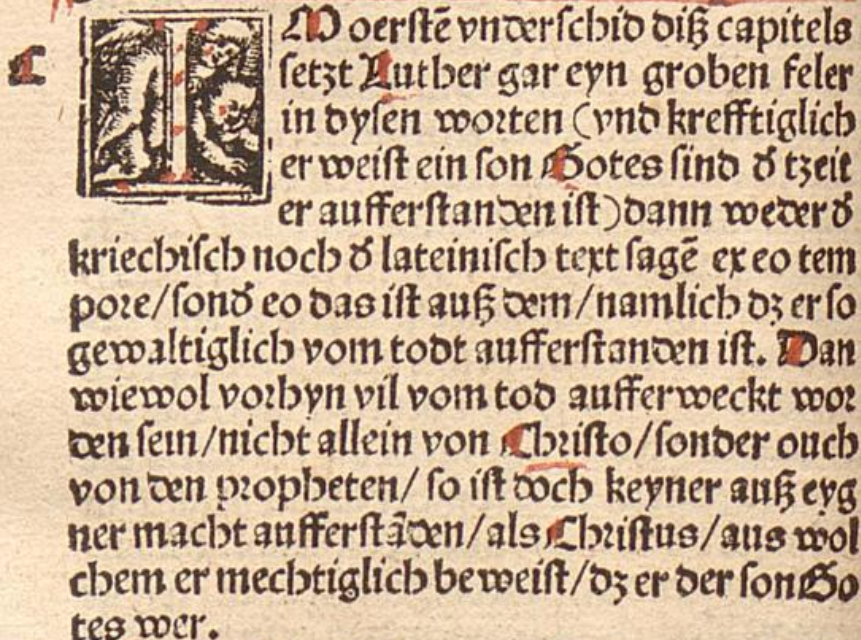 IM oerstē vnderschid diß capitels
setzt Luther gar eyn groben feler
in dysen worten (vnd krefftiglich
er weist ein son Gotes sind d̕ tzeit
er aufferstanden ist) dann weder d̕
kriechisch noch d̕ lateinisch text sagē ex eo tem
pore/sond̕ eo das ist auß dem/namlich dz er so
gewaltiglich vom todt aufferstanden ist. Dan
wiewol vorhyn vil vom tod aufferweckt wor
den sein/nicht allein von Christo/sonder ouch
von den propheten/ so ist doch keyner auß eyg
ner macht aufferstāden/als Christus/aus wol
chem er mechtiglich beweist/dz er der son Go
tes wer.